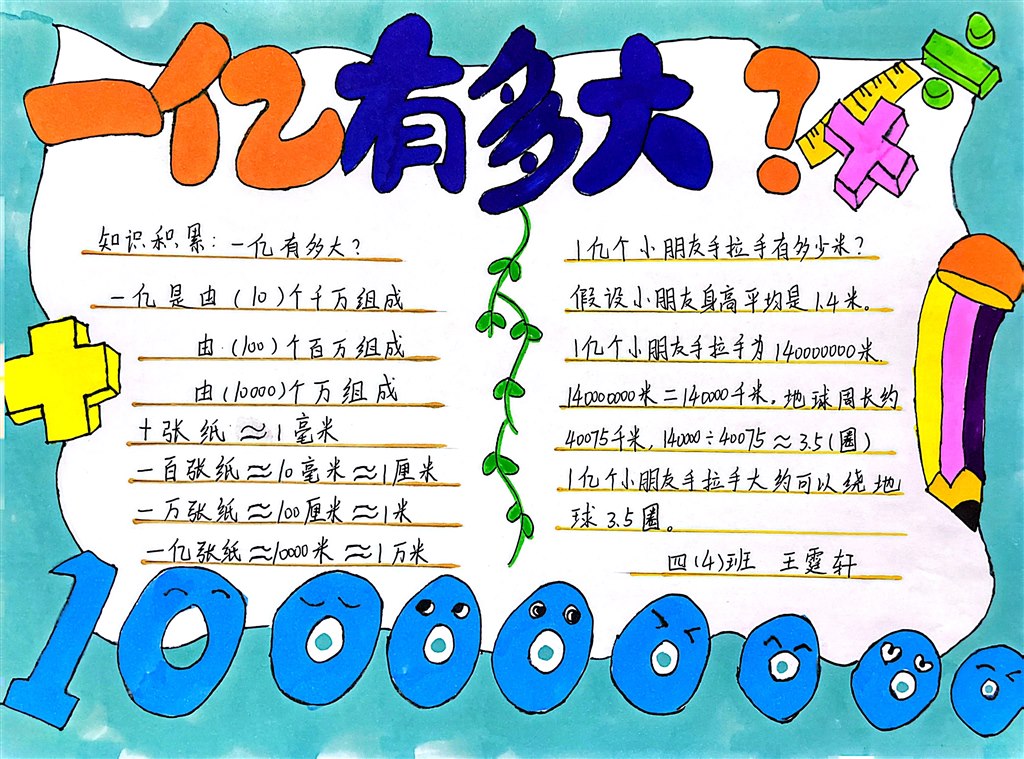 一亿有多大?
知识积累:一亿有多大?
一亿是由(10)个千万组成
由(100)个百万组成
由(10000)个万组成
十张纸≈1毫米
一百张纸≈10毫米≈1厘米
一万张纸≈100厘米≈1米
一亿张纸≈10000米≈1万米
1亿个小朋友手拉手有多少米?
假设小朋友身高平均是1.4米。
1亿个小朋友手拉手为140000000米.
140000000米=140000千米。地球周长约
40075千米,140000÷40075≈3.5(圈)
1亿个小朋友手拉手大约可以绕地
球3.5圈。
四(4)班 王霆轩
100000000